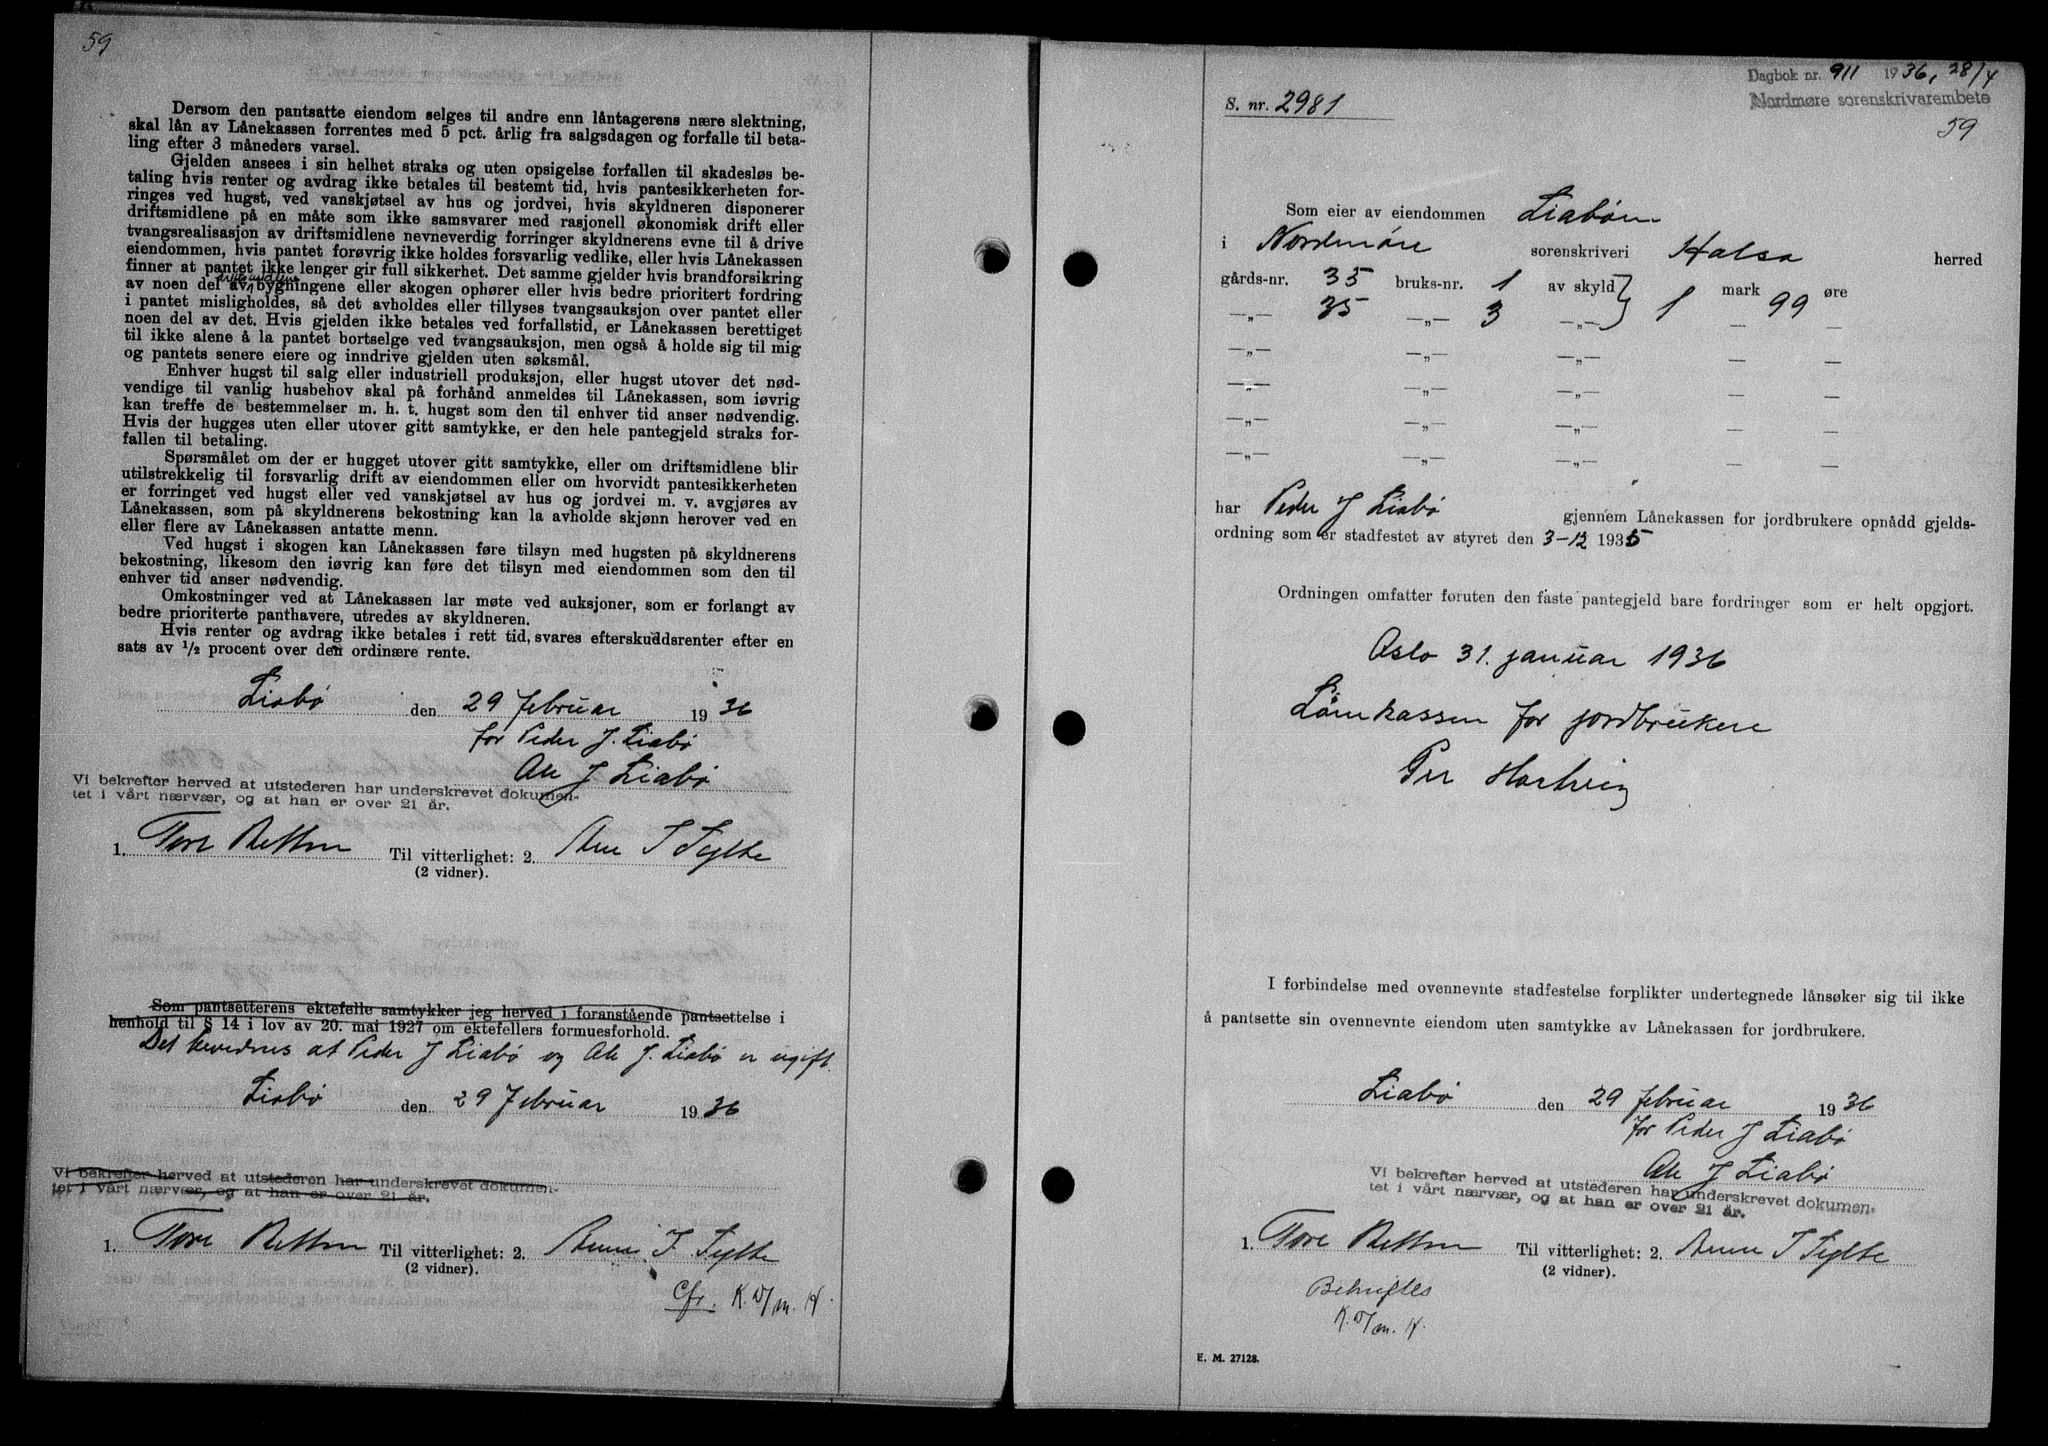 59
Dersom den pantsatte eiendom selges til andre enn låntagerens nære slektning,
skal lån av Lånekassen forrentes med 5 pct. årlig fra salgsdagen og forfalle til beta-
ling efter 3 måneders varsel.
Gjelden ansees i sin helhet straks og uten opsigelse forfallen til skadesløs be-
taling hvis renter og avdrag ikke betales til bestemt tid, hvis pantesikkerheten for-
ringes ved hugst, ved vanskjøtsel av hus og jordvei, hvis skyldneren disponerer
driftsmidlene på en måte som ikke samsvarer med rasjonell økonomisk drift eller
tvangsrealisasjon av driftsmidlene nevneverdig forringer skyldnerens evne til å drive
eiendommen, hvis pantet forøvrig ikke holdes forsvarlig vedlike, eller hvis Lånekassen
finner at pantet ikke lenger gir full sikkerhet. Det samme gjelder hvis brandforsikring
av noen del av bygningene eller skogen ophører eller hvis bedre prioritert fordring
i pantet misligholdes, så det avholdes eller tillyses tvangsauksjon over pantet eller
noen del av det. Hvis gjelden ikke betales ved forfallstid, er Lånekassen berettiget
til ikke alene å la pantet bortselge ved tvangsauksjon, men også å holde sig til mig
og pantets senere eiere og inndrive gjelden uten søksmål.
Enhver hugst til salg eller industriell produksjon, eller hugst utover det nød-
vendige til vanlig husbehov skal på forhånd anmeldes til Lånekassen, som iøvrig
kan treffe de bestemmelser m. h. t. hugst som den til enhver tid anser nødvendig.
Hvis der hugges uten eller utover gitt samtykke, er den hele pantegjeld straks for-
fallen til betaling.
Spørsmålet om der er hugget utover gitt samtykke, eller om driftsmidlene blir
utilstrekkelig til forsvarlig drift av eiendommen eller om hvorvidt pantesikkerheten
er forringet ved hugst eller ved vanskjøtsel av hus og jordvei m. v. avgjøres av
Lånekassen, som på skyldnerens bekostning kan la avholde skjønn herover ved en
eller flere av Lånekassen antatte menn.
Ved hugst i skogen kan Lånekassen føre tilsyn med hugsten på skyldnerens
bekostning, likesom den iøvrig kan føre det tilsyn med eiendommen som den til
enhver tid anser nødvendig.
Omkostninger ved at Lånekassen lar møte ved auksjoner, som er forlangt av
bedre prioriterte panthavere, utredes av skyldneren.
Hvis renter og avdrag ikke betales i rett tid, svares efterskuddsrenter efter en
sats av 1/2 procent over den ordinære rente.
Liabø den 29 februar 1936
for Peder J. Liabø
Ale J Liabø
Vi bekrefter herved at utstederen har underskrevet dokumen-
tet i vårt nærvær, og at han er over 21 år.
1. Tore Betten Til vitterlighet: 2. Arne T Fylte
(2 vidner).
Som pantsetterens ektefelle samtykker jeg herved i foranstående pantsettelse i
henhold til § 14 i lov av 20. mai 1927 om ektefellers formuesforhold.
Det bevidnes at Peder J Liabø og Ale J. Liabø er ugift.
Liabø den 29 februar 1936
Vi bekrefter herved at utstederen har underskrevet dokumen-
tet i vårt nærvær, og at han er over 21 år.
1. Tore Betten Til vitterlighet: 2. Arne T. Fylte
(2 vidner).
Cfr.
Dagbok nr. 911 1936, 28/4
Nordmøre sorenskrivarembete
S. nr. 2981
59
Som eier av eiendommen Liabøen
i Nordmøre sorenskriveri Halsa herred
gårds-nr. 35 bruks-nr. 1 av skyld } 1 mark 99 øre
—„— 35 —„— 3 —„— — —
—„— —„— —„— — —
—„— —„— —„— — —
—„— —„— —„— — —
—„— —„— —„— — —
har Peder J Liabø gjennem Lånekassen for jordbrukere opnådd gjelds-
ordning som er stadfestet av styret den 3-12 1935
Ordningen omfatter foruten den faste pantegjeld bare fordringer som er helt opgjort.
Oslo 31. januar 1936
Lånekassen for jordbrukere
Per Hartvig
I forbindelse med ovennevnte stadfestelse forplikter undertegnede lånsøker sig til ikke
å pantsette sin ovennevnte eiendom uten samtykke av Lånekassen for jordbrukere.
Liabø den 29 februar 1936
for Peder J Liabø
Ale J Liabø
Vi bekrefter herved at utstederen har underskrevet dokumen-
tet i vårt nærvær, og at han er over 21 år.
1. Tore Betten Til vitterlighet: 2. Arne T Fylte
(2 vidner).
E. M. 27128.